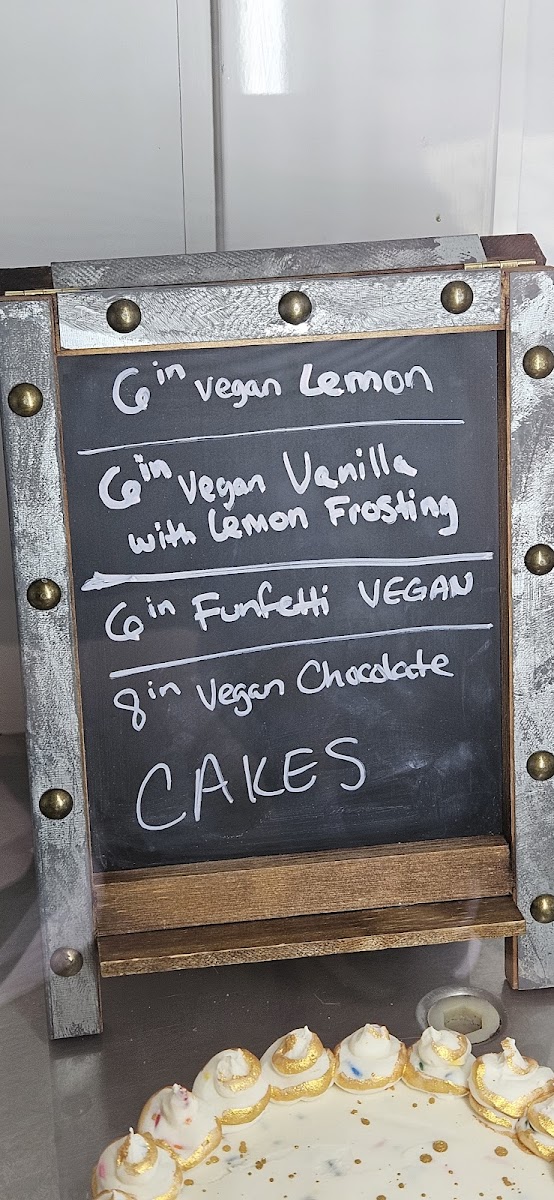 6in vegan Lemon
6in Vegan Vanilla
with Lemon Frosting
6in Funfetti VEGAN
8in Vegan Chocolate
CAKES